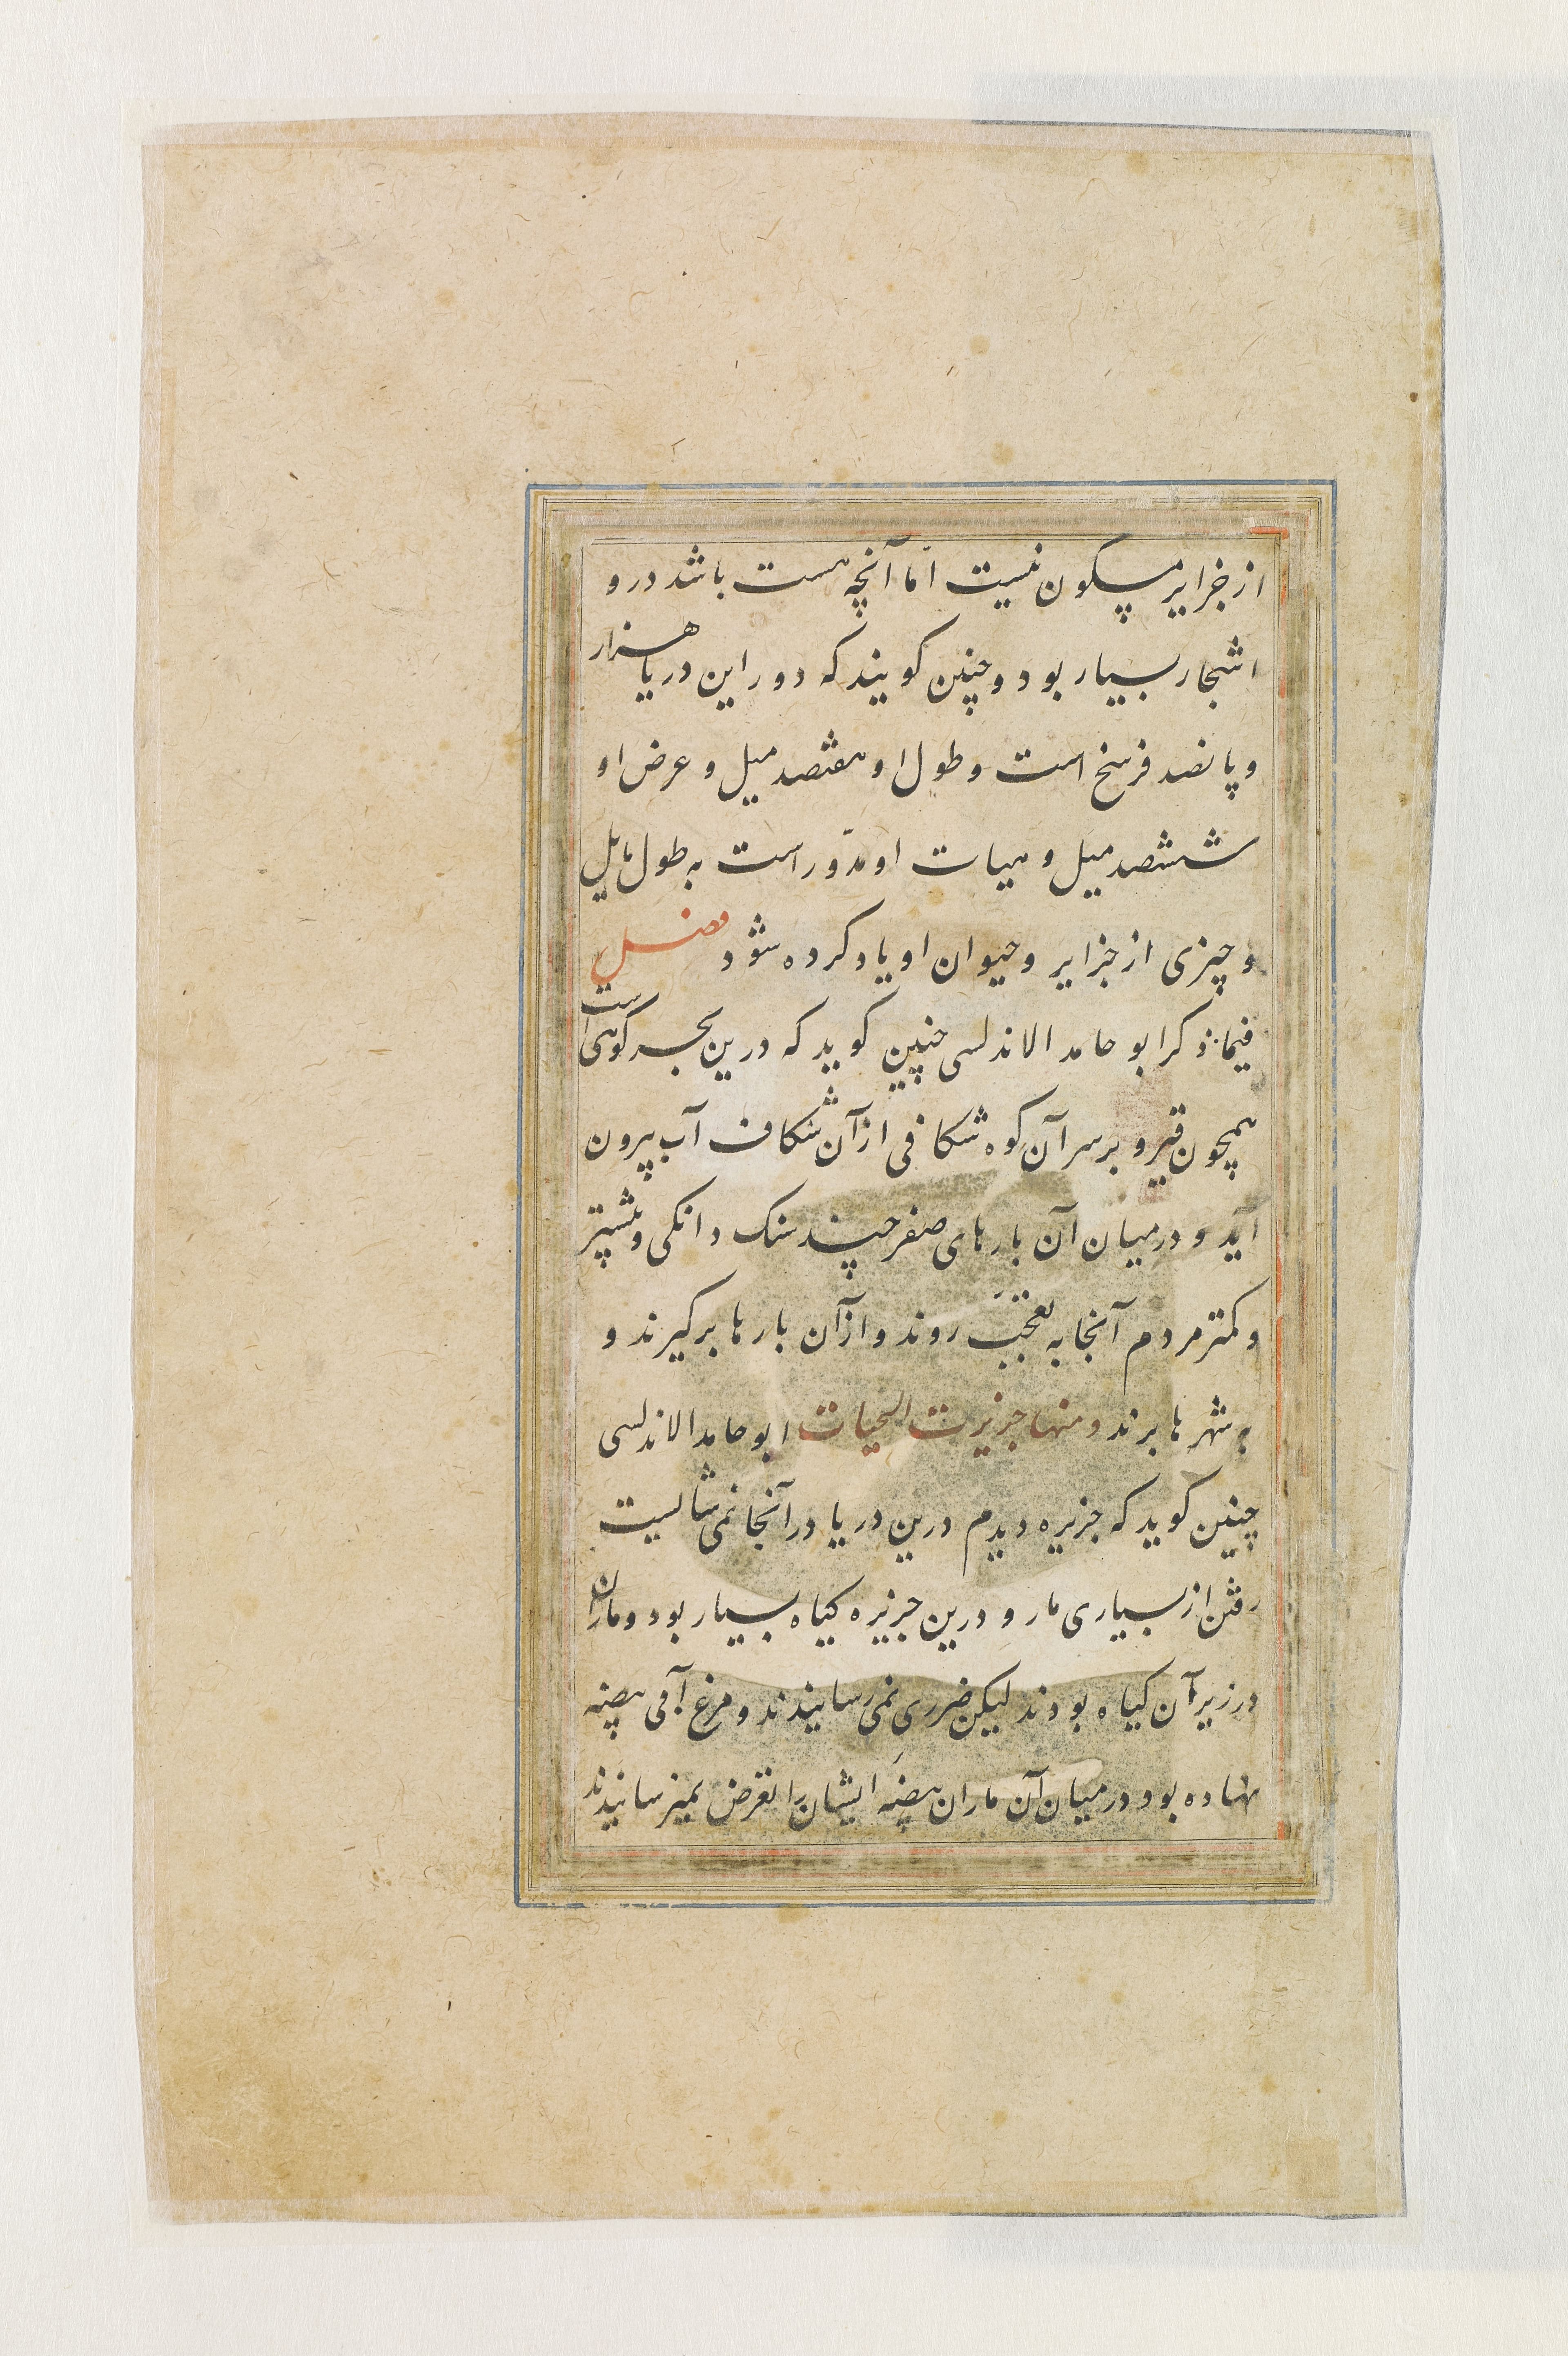 از جزایر مسکون نیست امّا آنچه هست باشد درو
اشجار بسیار بود و چنین کویند که دور این دریا هزار
و پانصد فرسخ است و طول او هفتصد میل و عرض او
ششصد میل و هیات او مدّور است به طول مایل
و چیزی از جزایر و حیوان او یاد کرده شود فصل
فیما ذکر ابو حامد الاندلسی چنین کوید که درین بحر کوهی است
همچون قیر و بر سر آن کوه شکافی از آن شکاف آب بیرون
آید و در میان آن بارهای صفر چند سنک دانکی و بیشتر
و کمتر مردم آنجا به تعجّب روند و از آن بارها برکیرند و
به شهرها برند و منها جزیرت الحیات ابو حامد الاندلسی
چنین کوید که جزیره دیدم درین دریا در آنجا نمی شایست
رفتن از بسیاری مار و درین جزیره کیاه بسیار بود و ماران
در زیر آن کیاه بودند لیکن ضرری نمی رسانیدند و مرغ آبی بیضه
نهاده بود در میان آن ماران بیضه ایشان را تعرض نمیرسانیدند